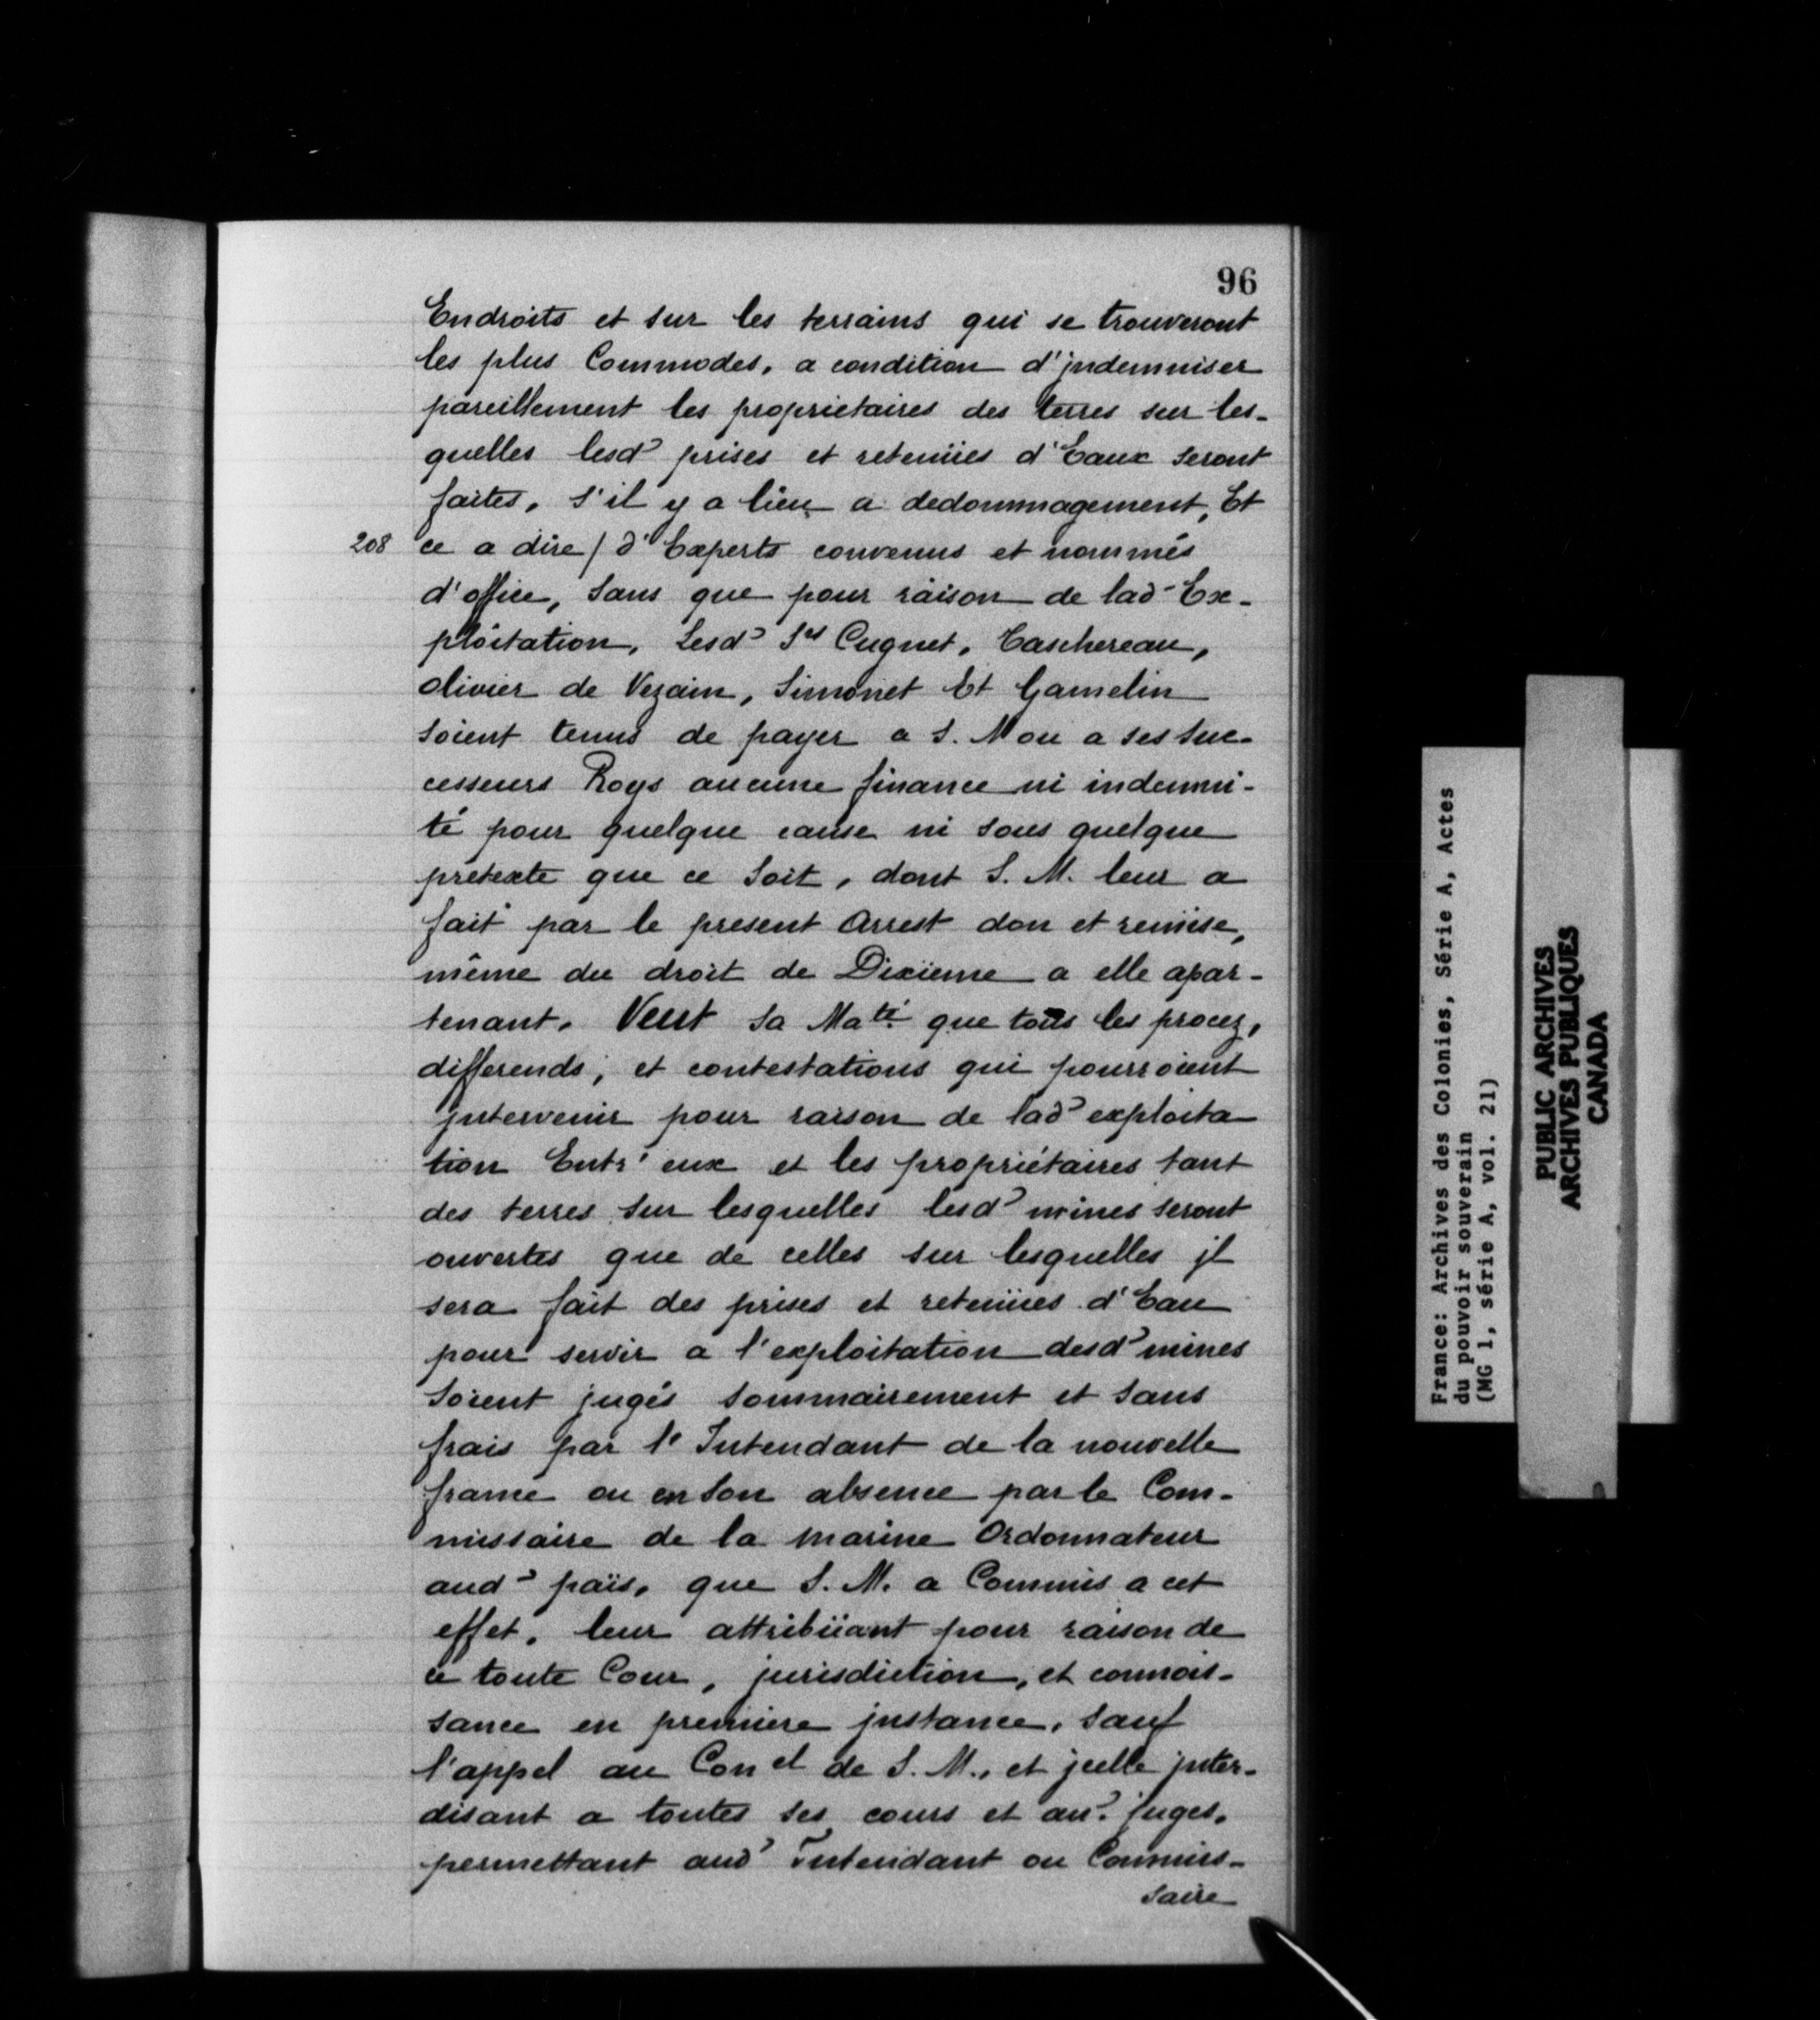 96
Endroits et sur les terrains qui se trouveront
les plus Commodes, a condition d'jndemniser
pareillement les proprietaires des terres sur les-
quelles lesd. prises et retenües d'Eaux seront
faites, s'il y a lieu a dedommagement, Et
208 ce a dire / d'Experts convenus et nommés
d'office, sans que pour raison de lad. Ex-
ploitation, Lesd. Srs Cugnet, Taschereau,
olivier de Vezain, Simonet Et Gamelin
soient tenus de payer a S. M ou a ses suc-
cesseurs Roys aucune finance ni indemni-
té pour quelque cause ni sous quelque
prétexte que ce soit, dont S. M. leur a
fait par le present Arrest don et remise,
même du droit de Dixieme a elle apar-
tenant. Veut Sa Maté que tous les procez,
differends, et contestations qui pourroient
jntervenir pour raison de lad. exploita
tion Entr'eux et les propriétaires tant
des terres sur lesquelles lesd. mines seront
ouvertes que de celles sur lesquelles jl
sera fait des prises et retenües d'Eau
pour servir a l'exploitation desd. mines
soient jugés sommairement et sans
frais par l'Intendant de la nouvelle
france ou en son absence par le Com-
missaire de la marine Ordonnateur
aud. païs, que S. M. a Commis a cet
effet, leur attribüant pour raison de
ce toute Cour, jurisdiction, et connois-
sance en premiere jnstance, sauf
l'appel au Conel de S. M., et jcelle jnter-
disant a toutes ses cours et au. juges,
permettant aud. Intendant ou Commis-
saire
France: Archives des Colonies, Série A, Actes
du pouvoir souverain
(MG 1, série A, vol. 21)
PUBLIC ARCHIVES
ARCHIVES PUBLIQUES
CANADA